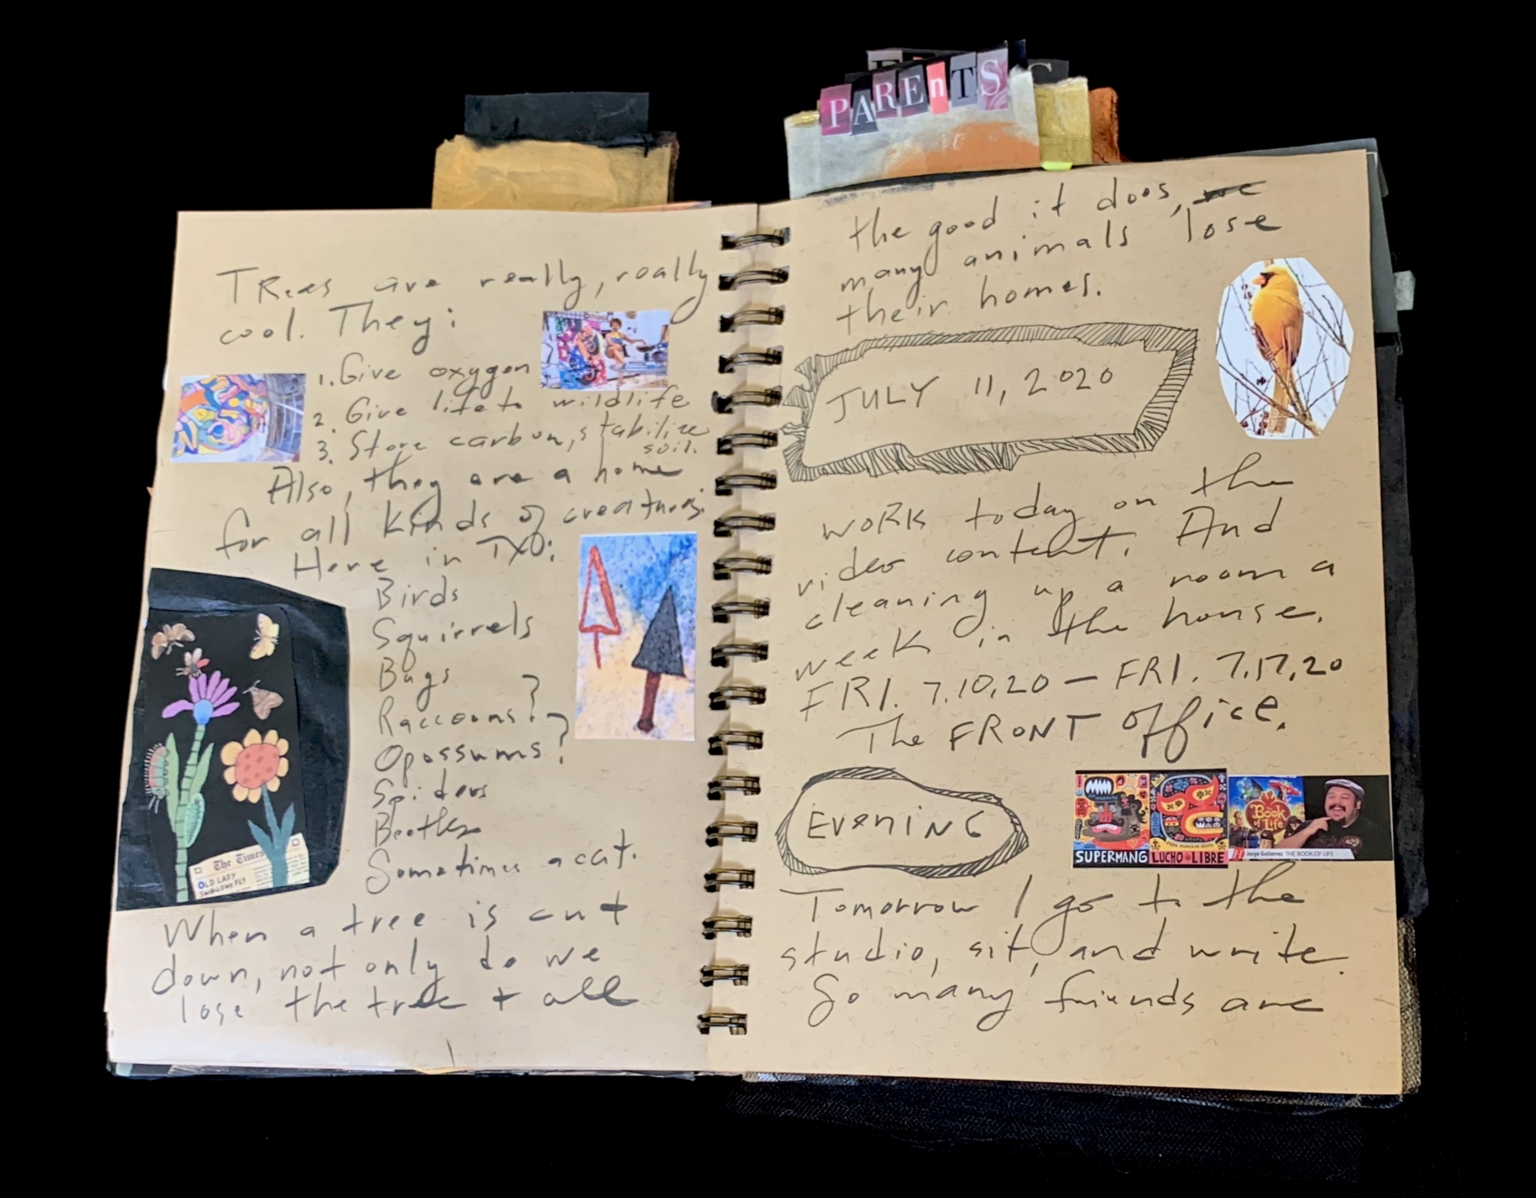 PARENTS
Trees are really, really
cool. They:
1. Give oxygen
2. Give life to wildlife
3. Store carbon, stabilize
soil.
Also, they are a home
for all kinds of creatures.
Here in TX:
Birds
Squirrels
Bugs
Raccoons?
Opossums?
Spiders
Beetles
Sometimes a cat.
The Times
OLD LADY
SWALLOWS FLY
When a tree is cut
down, not only do we
lose the tree + all
the good it does, we
many animals lose
their homes.
JULY 11, 2020
WORK today on the
video content. And
cleaning up a room a
week in the house.
FRI. 7.10.20 — FRI. 7.17.20
The FRONT office.
EVENING
SUPERMANG LUCHO LIBRE
Book of Life
Jorge Gutierrez THE BOOK OF LIFE
Tomorrow I go to the
studio, sit, and write.
So many friends are